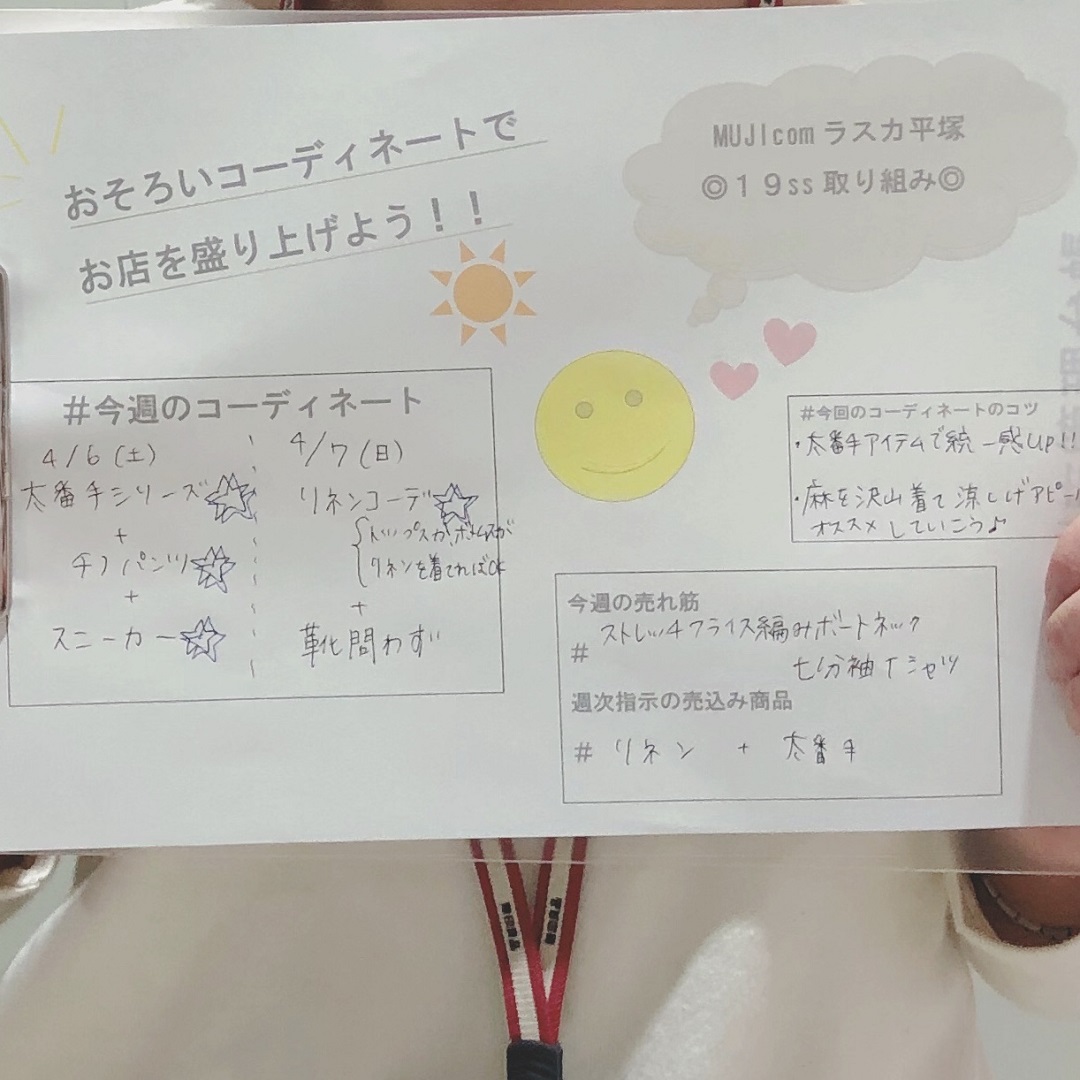 おそろいコーディネートで
お店を盛り上げよう！！
MUJIcom ラスカ平塚
◎１９ss 取り組み◎
＃今週のコーディネート
4/6(土)
太番手シリーズ
+
チノパンツ
+
スニーカー
4/7(日)
リネンコーデ
トップスかボトムスが
リネンを着てればOK
+
靴問わず
＃今回のコーディネートのコツ
・太番手アイテムで統一感UP!!
・麻を沢山着て涼しげアピール
オススメしていこう♪
今週の売れ筋
# ストレッチフライス編みボートネック
七分袖Tシャツ
週次指示の売込み商品
# リネン + 太番手